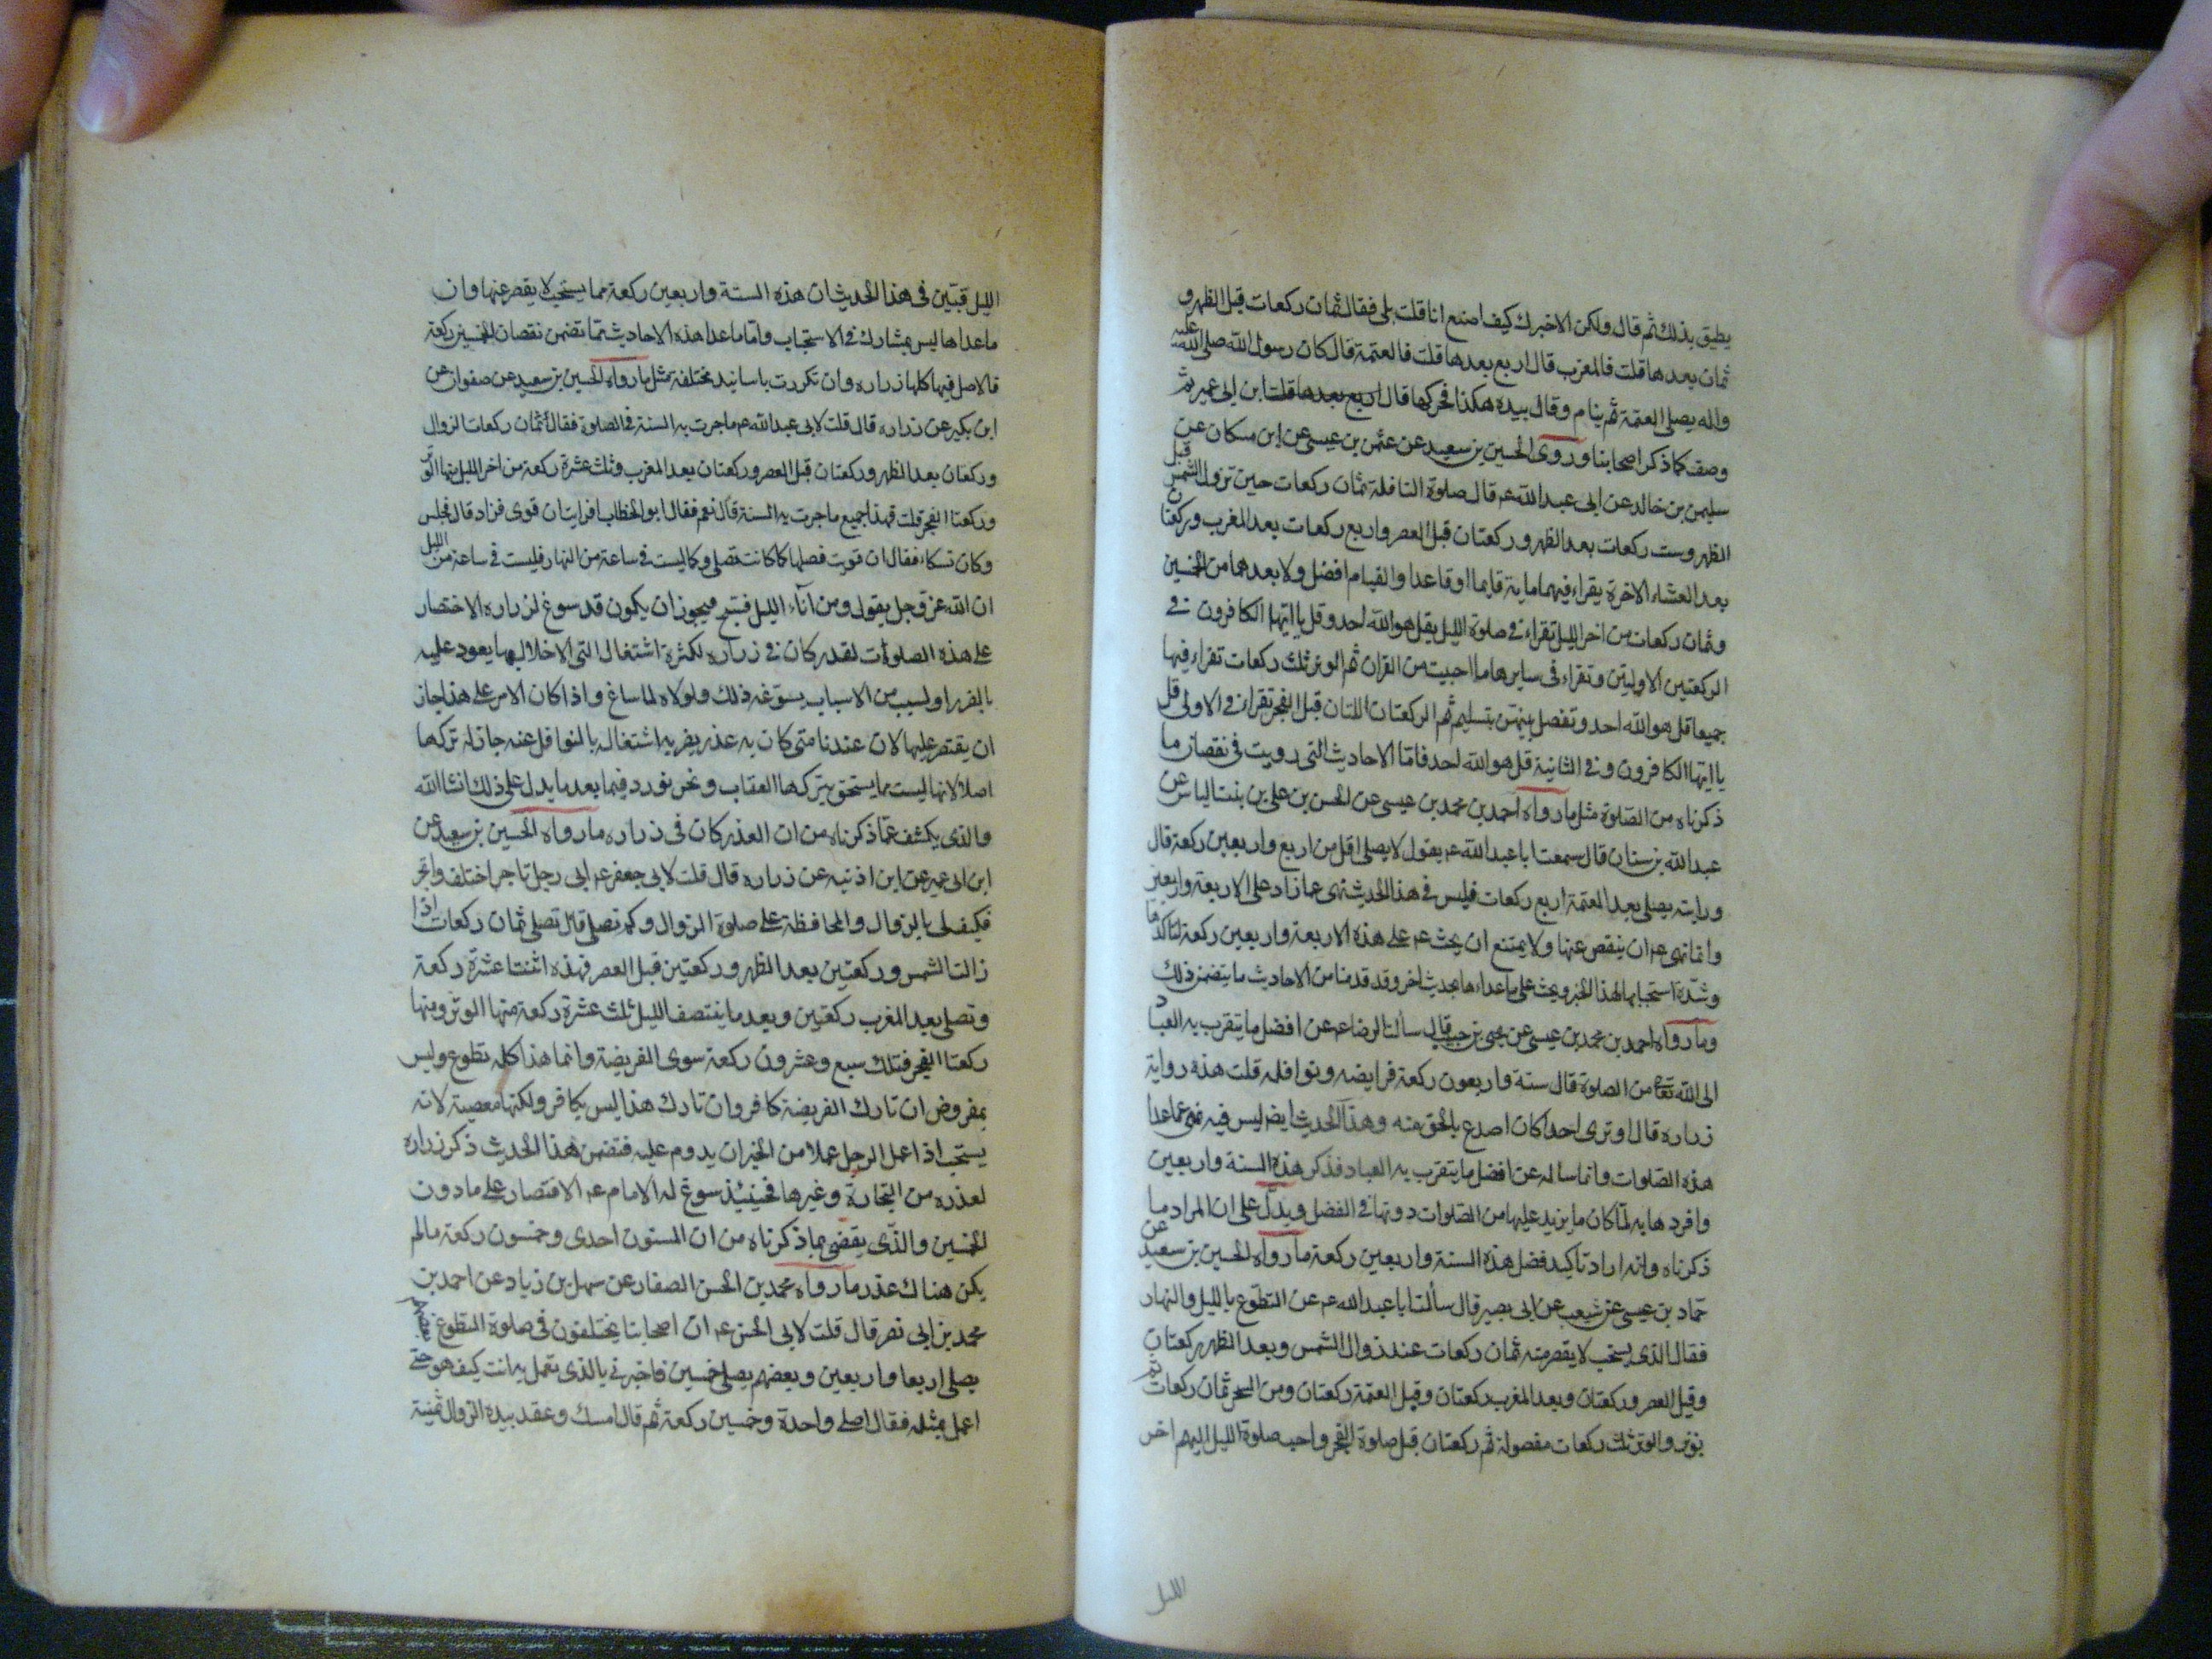 يطيق بذلك ثم قال ولكن الا خبرك كيف اصنع انا قلت بلى فقال ثمان ركعات قبل الظهر و
ثمان بعدها قلت فالمغرب قال اربع بعدها قلت فالعتمة قال كان رسول الله صلى الله عليه
واله يصلى العتمة ثم ينام وقال بيده هكذا فحركها قال اربع بعدها قلت ابن ابى عمير ثم
وصف كما ذكر اصحابنا وروى الحسين بن سعيد عن عثمن بن عيسى عن ابن مسكان عن
سليمن بن خالد عن ابى عبدالله ع قال صلوة النافلة ثمان ركعات حين تزول الشمس قبل
الظهر وست ركعات بعد الظهر وركعتان قبل العصر واربع ركعات بعد المغرب وركعتان
بعد العشاء الاخرة يقراء فيهما ماية قايما او قاعدا والقيام افضل ولا بعدهما من الخمسين
وثمان ركعات من اخر الليل تقراء فى صلوة الليل بقل هو الله احد وقل يا ايها الكافرون فى
الركعتين الاوليتين وتقراء فى سايرها ما احببت من القران ثم الوتر ثلث ركعات تقراء فيها
جميعا قل هو الله احد وتفصل بينهن بتسليم ثم الركعتان اللتان قبل الفجر تقراء فى الاولى قل
يا ايها الكافرون وفى الثانية قل هو الله احد فاما الاحاديث التى رويت فى نقصان ما
ذكرناه من الصلوة مثل ما رواه احمد بن محمد بن عيسى عن الحسن بن على بن بنت الياس عن
عبدالله بن سنان قال سمعت ابا عبدالله ع يقول لا يصلى اقل من اربع واربعين ركعة قال
ورايته يصلى بعد العتمة اربع ركعات فليس فى هذا الحديث نهى عما زاد على الاربعة واربعين
وانما نهى ع ان ينقص عنها ولا يمتنع ان يحث ع على هذه الاربعة واربعين ركعة لتاكدها
وشدة استحبابها بهذا الخبر ويحث على ما عداها بحديث اخر وقد قدمنا من الاحاديث ما يتضمن ذلك
وما رواه احمد بن محمد بن عيسى عن يحيى بن حبيب قال سالت الرضا ع عن افضل ما يتقرب به العباد
الى الله تعالى من الصلوة قال ستة واربعون ركعة فرايضه ونوافله قلت هذه رواية
زراره قال او ترى احدا كان اصدع بالحق منه وهذا الحديث ايضا ليس فيه نهى عما عدا
هذه الصلوات وانما ساله عن افضل ما يتقرب به العباد فذكر هذه الستة واربعين
وافردها به لما كان ما يزيد عليها من الصلوات دونها فى الفضل ويدل على ان المراد ما
ذكرناه وانه اراد تاكيد فضل هذه الستة واربعين ركعة ما رواه الحسين بن سعيد عن
حماد بن عيسى عن شعيب عن ابى بصير قال سألت ابا عبدالله ع عن التطوع بالليل والنهار
فقال الذى يستحب لا يقصر منه ثمان ركعات عند زوال الشمس وبعد الظهر ركعتان
وقبل العصر وركعتان وبعد المغرب ركعتان وقبل العتمة ركعتان ومن السحر ثمان ركعات ثم
يوتر والوتر ثلث ركعات مفصولة ثم ركعتان قبل صلوة الفجر واحب صلوة الليل اليهم اخر
الليل
الليل فبين فى هذا الحديث ان هذه الستة واربعين ركعة مما يستحب لا يقصر عنها وان
ما عداها ليس بمشارك فى الاستحباب واما ما عدا هذه الاحاديث مما تضمن نقصان الخمسين ركعة
فالاصل فيها كلها زراره وان تكررت باسانيد مختلفة مثل ما رواه الحسين بن سعيد عن صفوان عن
ابن بكير عن زراره قال قلت لابى عبدالله ع ما جرت به السنة فى الصلوة فقال ثمان ركعات الزوال
وركعتان بعد الظهر وركعتان قبل العصر وركعتان بعد المغرب وثلث عشرة ركعة من اخر الليل منها الوتر
وركعتا الفجر قلت فهذا جميع ما جرت به السنة قال نعم فقال ابو الخطاب افرايت ان قوى فزاد قال فجلس
وكان متكاء فقال ان قويت فصلها كما كانت تصلى وكما ليست فى ساعة من النهار فليست فى ساعة من الليل
ان الله عز وجل يقول ومن آناء الليل فسبح فيجوز ان يكون قد سوغ لزراره الاختصار
على هذه الصلوات لعذر كان فى زراره لكثرة اشتغال التى الاخلال بها يعود عليه
بالضرر او لسبب من الاسباب يسوغه ذلك ولولاه لما ساغ واذا كان الامر على هذا جاز
ان يقتصر عليها لان عندنا متى كان به عذر يضر به اشتغاله بالنوافل عنه جاز له تركها
اصلا لانها ليست مما يستحق بتركها العقاب ونحن نورد فيما بعد ما يدل على ذلك انشا الله
والذى يكشف عما ذكرناه من ان العذر كان فى زراره ما رواه الحسين بن سعيد عن
ابن ابى عمير عن ابن اذنيه عن زراره قال قلت لابى جعفر ع انى رجل تاجر اختلف واتجر
فكيف لى بالزوال والمحافظة على صلوة الزوال وكم تصلى قال تصلى ثمان ركعات اذا
زالت الشمس وركعتين بعد الظهر وركعتين قبل العصر فهذه اثنتا عشرة ركعة
وتصلى بعد المغرب ركعتين وبعد ما ينتصف الليل ثلث عشرة ركعة منها الوتر ومنها
ركعتا الفجر فتلك سبع وعشرون ركعة سوى الفريضة وانما هذا كله تطوع وليس
بمفروض ان تارك الفريضة كافر وان تارك هذا ليس بكافر ولكنها معصية لانه
يستحب اذا عمل الرجل عملا من الخير ان يدوم عليه فتضمن هذا الحديث ذكر زراره
لعذره من التجارة وغيرها فحينئذ سوغ له الامام ع الاقتصار على ما دون
الخمسين والذى يقضى بما ذكرناه من ان المسنون احدى وخمسون ركعة ما لم
يكن هناك عذر ما رواه محمد بن الحسن الصفار عن سهل بن زياد عن احمد بن
محمد بن ابى نصر قال قلت لابى الحسن ع ان اصحابنا يختلفون فى صلوة التطوع بعضهم
يصلى اربعا واربعين وبعضهم يصلى خمسين فاخبرنى بالذى تعمل به انت كيف هو حتى
اعمل بمثله فقال اصلى واحدة وخمسين ركعة ثم قال امسك وعقد بيده الزوال ثمنية